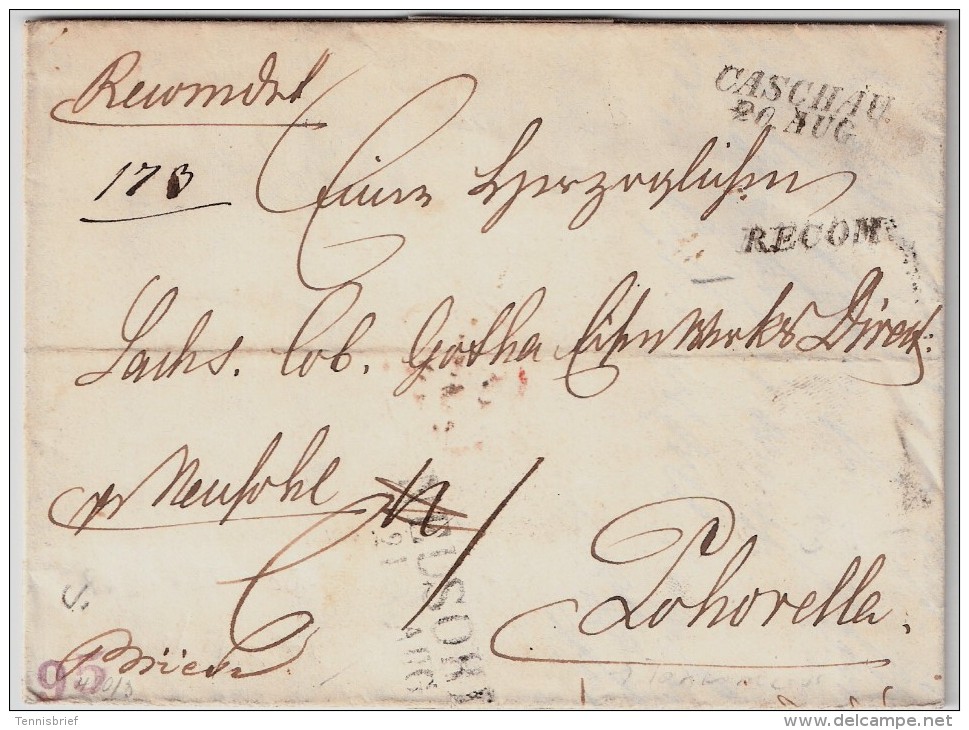 Recomdrt
CASCHAU.
20 AUG
173
Einer Herzoglichen
RECOM
Sachs. Cob. Gotha EisenWerks Direct:
pr Neusohl
NEUSOHL
21 AUG
Pohorella.
95
Tennisbrief
delcampe.net